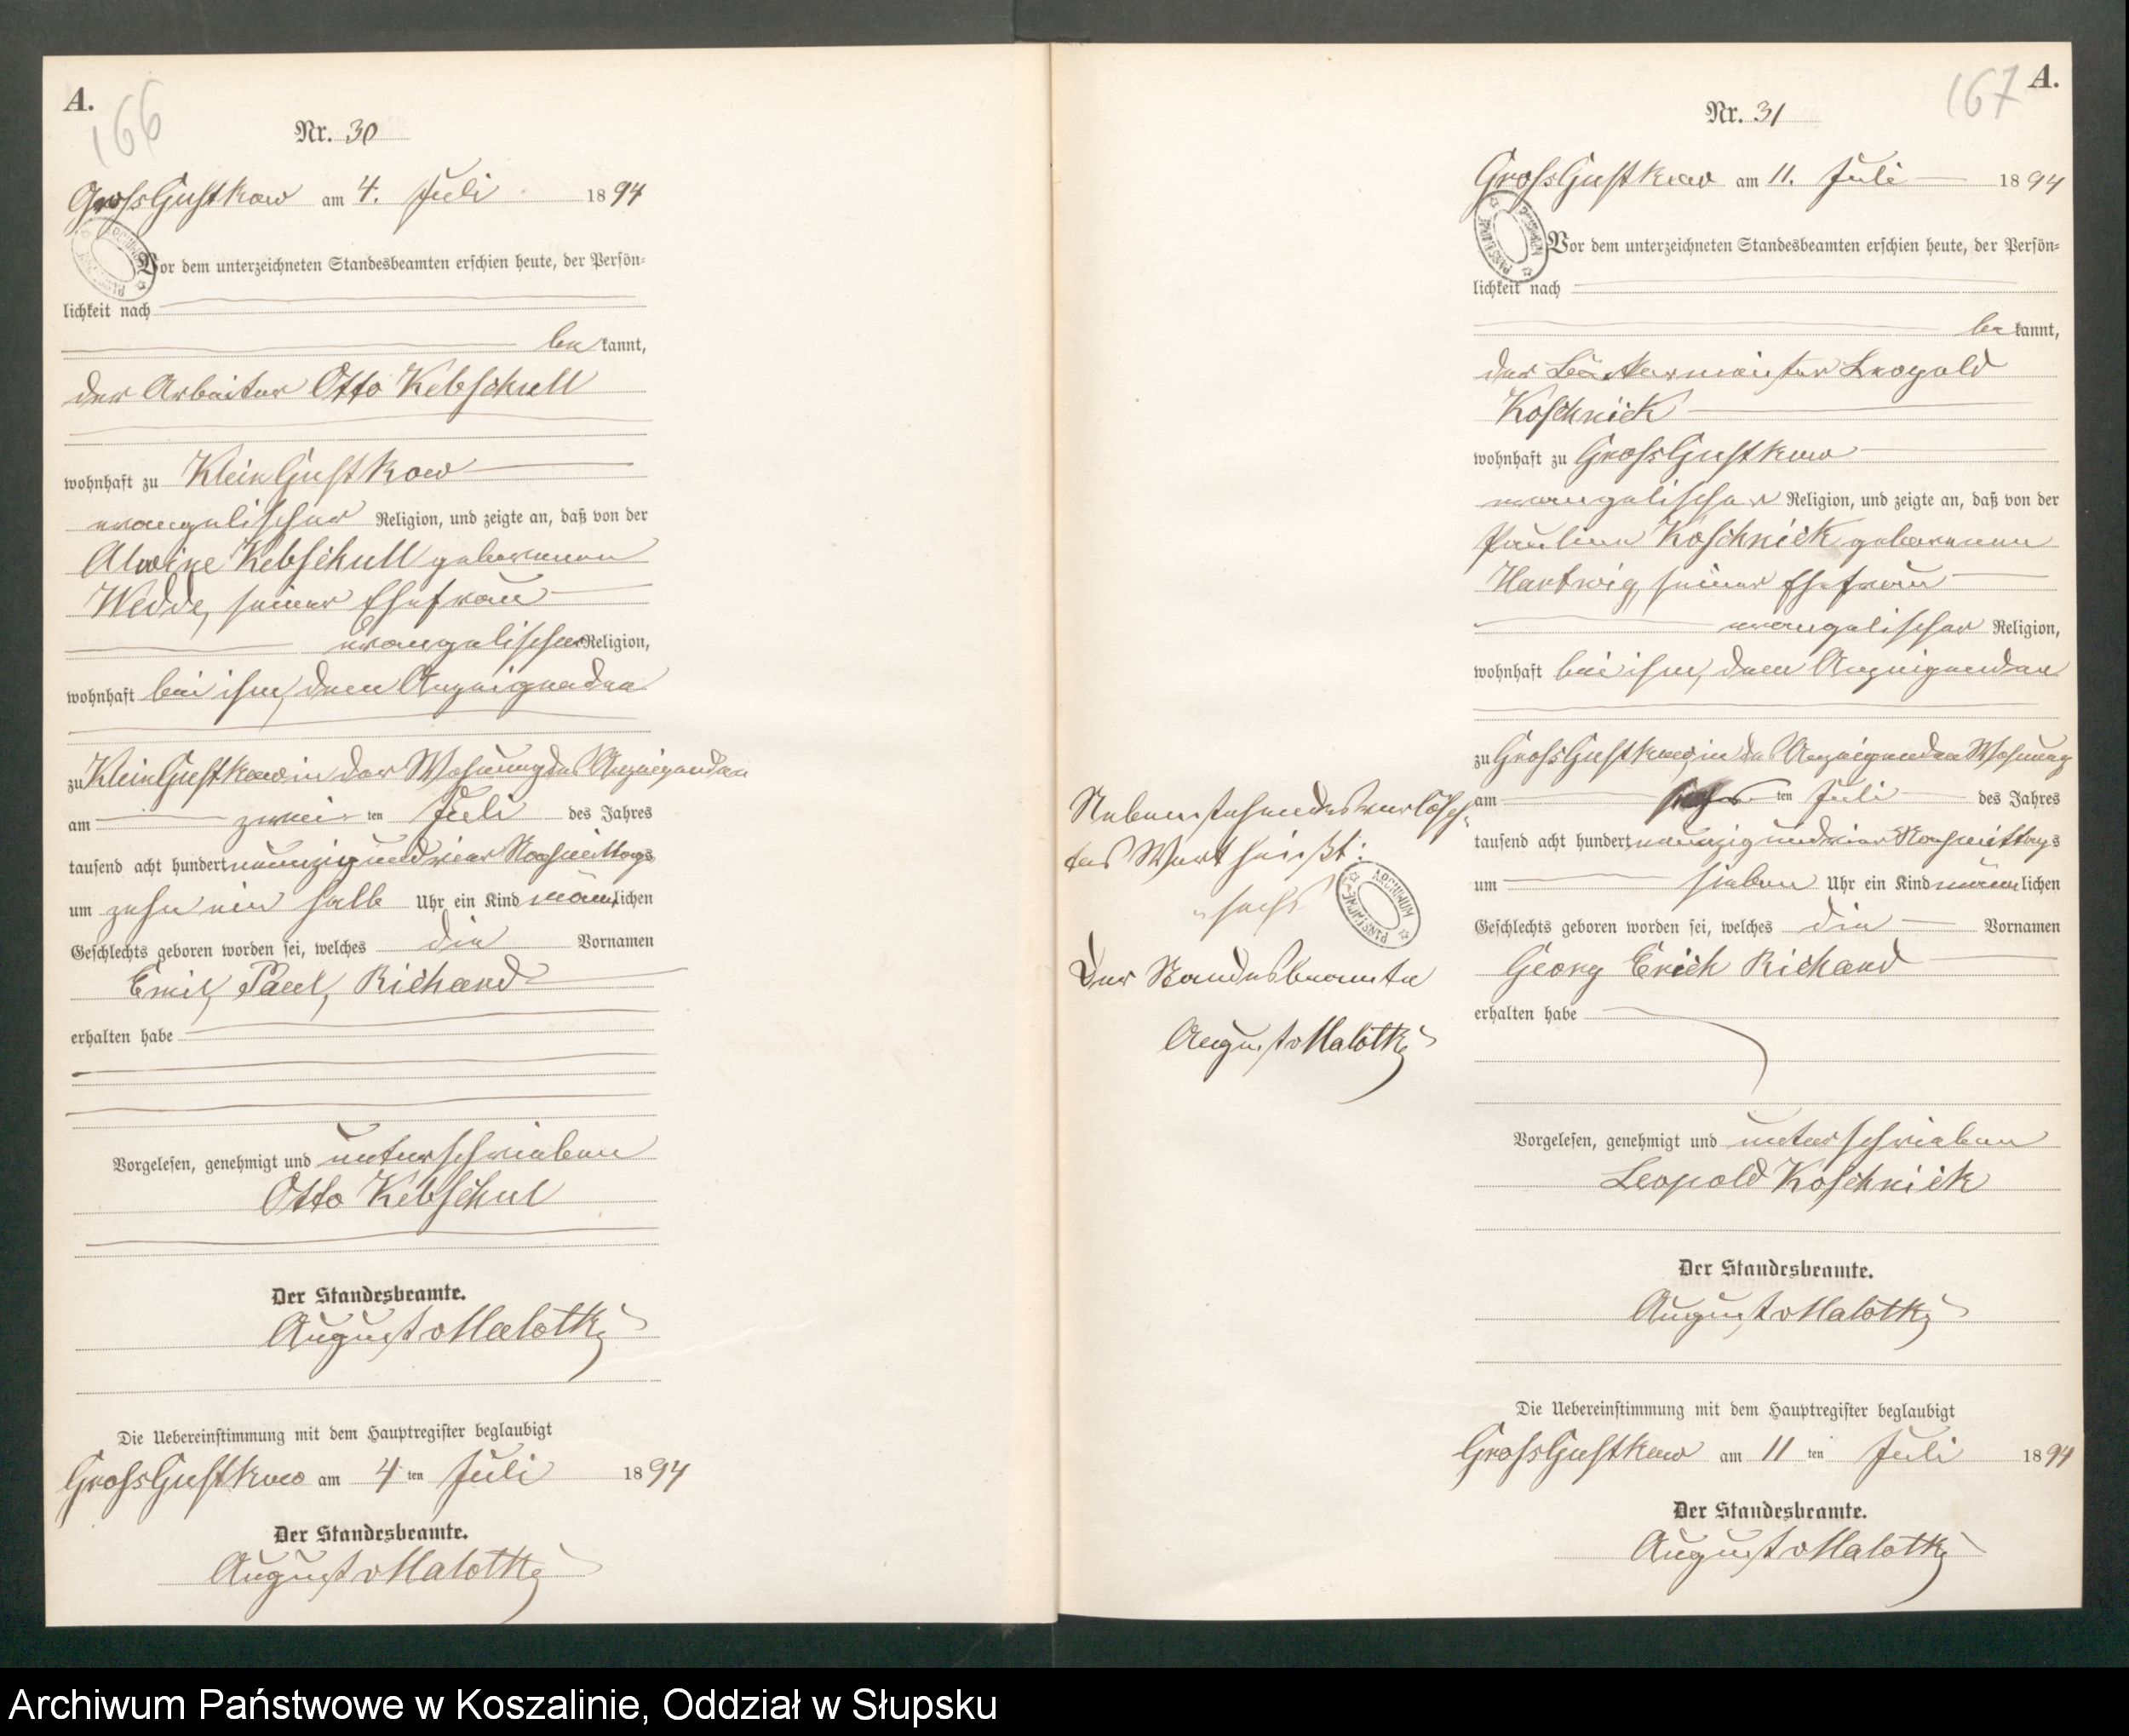 A.
166
Nr. 30
Gross Gustkow am 4. Juli 1894
Vor dem unterzeichneten Standesbeamten erschien heute, der Persön-
lichkeit nach
be kannt,
der Arbeiter Otto Kebschull
wohnhaft zu Klein Gustkow
evangelischer Religion, und zeigte an, daß von der
Alwine Kebschull geborenen
Wedde, seiner Ehefrau
evangelischer Religion,
wohnhaft bei ihm, dem Anzeigenden
zu Klein Gustkow in der Wohnung des Anzeigenden
am zwei ten Juli des Jahres
tausend acht hundert neunzig und vier Nachmittags
um zehn ein halb Uhr ein Kind männlichen
Geschlechts geboren worden sei, welches die Vornamen
Emil, Paul, Richard
erhalten habe
Vorgelesen, genehmigt und unterschrieben
Otto Kebschul
Der Standesbeamte.
August v Malottky
Die Uebereinstimmung mit dem Hauptregister beglaubigt
Gross Gustkow am 4 ten Juli 1894
Der Standesbeamte.
August v Malottky
167
A.
Nr. 31
Gross Gustkow am 11. Juli 1894
Vor dem unterzeichneten Standesbeamten erschien heute, der Persön-
lichkeit nach
be kannt,
der Leopold
Koschnick
wohnhaft zu Gross Gustkow
evangelischer Religion, und zeigte an, daß von der
Pauline Koschnick geborenen
Hartwig, seiner Ehefrau
evangelischer Religion,
wohnhaft bei ihm, dem Anzeigenden
zu Gross Gustkow in des Anzeigenden Wohnung
am ten Juli des Jahres
tausend acht hundert neunzig und vier Nachmittags
um sieben Uhr ein Kind männlichen
Geschlechts geboren worden sei, welches die Vornamen
Georg Erich Richard
erhalten habe
Vorgelesen, genehmigt und unterschrieben
Leopold Koschnick
Der Standesbeamte.
August v Malottky
Die Uebereinstimmung mit dem Hauptregister beglaubigt
Gross Gustkow am 11 ten Juli 1894
Der Standesbeamte.
August v Malottky
Nebenstehendes verlösch-
tes Wort heißt:
„sechs"
ARCHIWUM PAŃSTWOWE
Der Standesbeamte
August v Malottky
Archiwum Państwowe w Koszalinie, Oddział w Słupsku